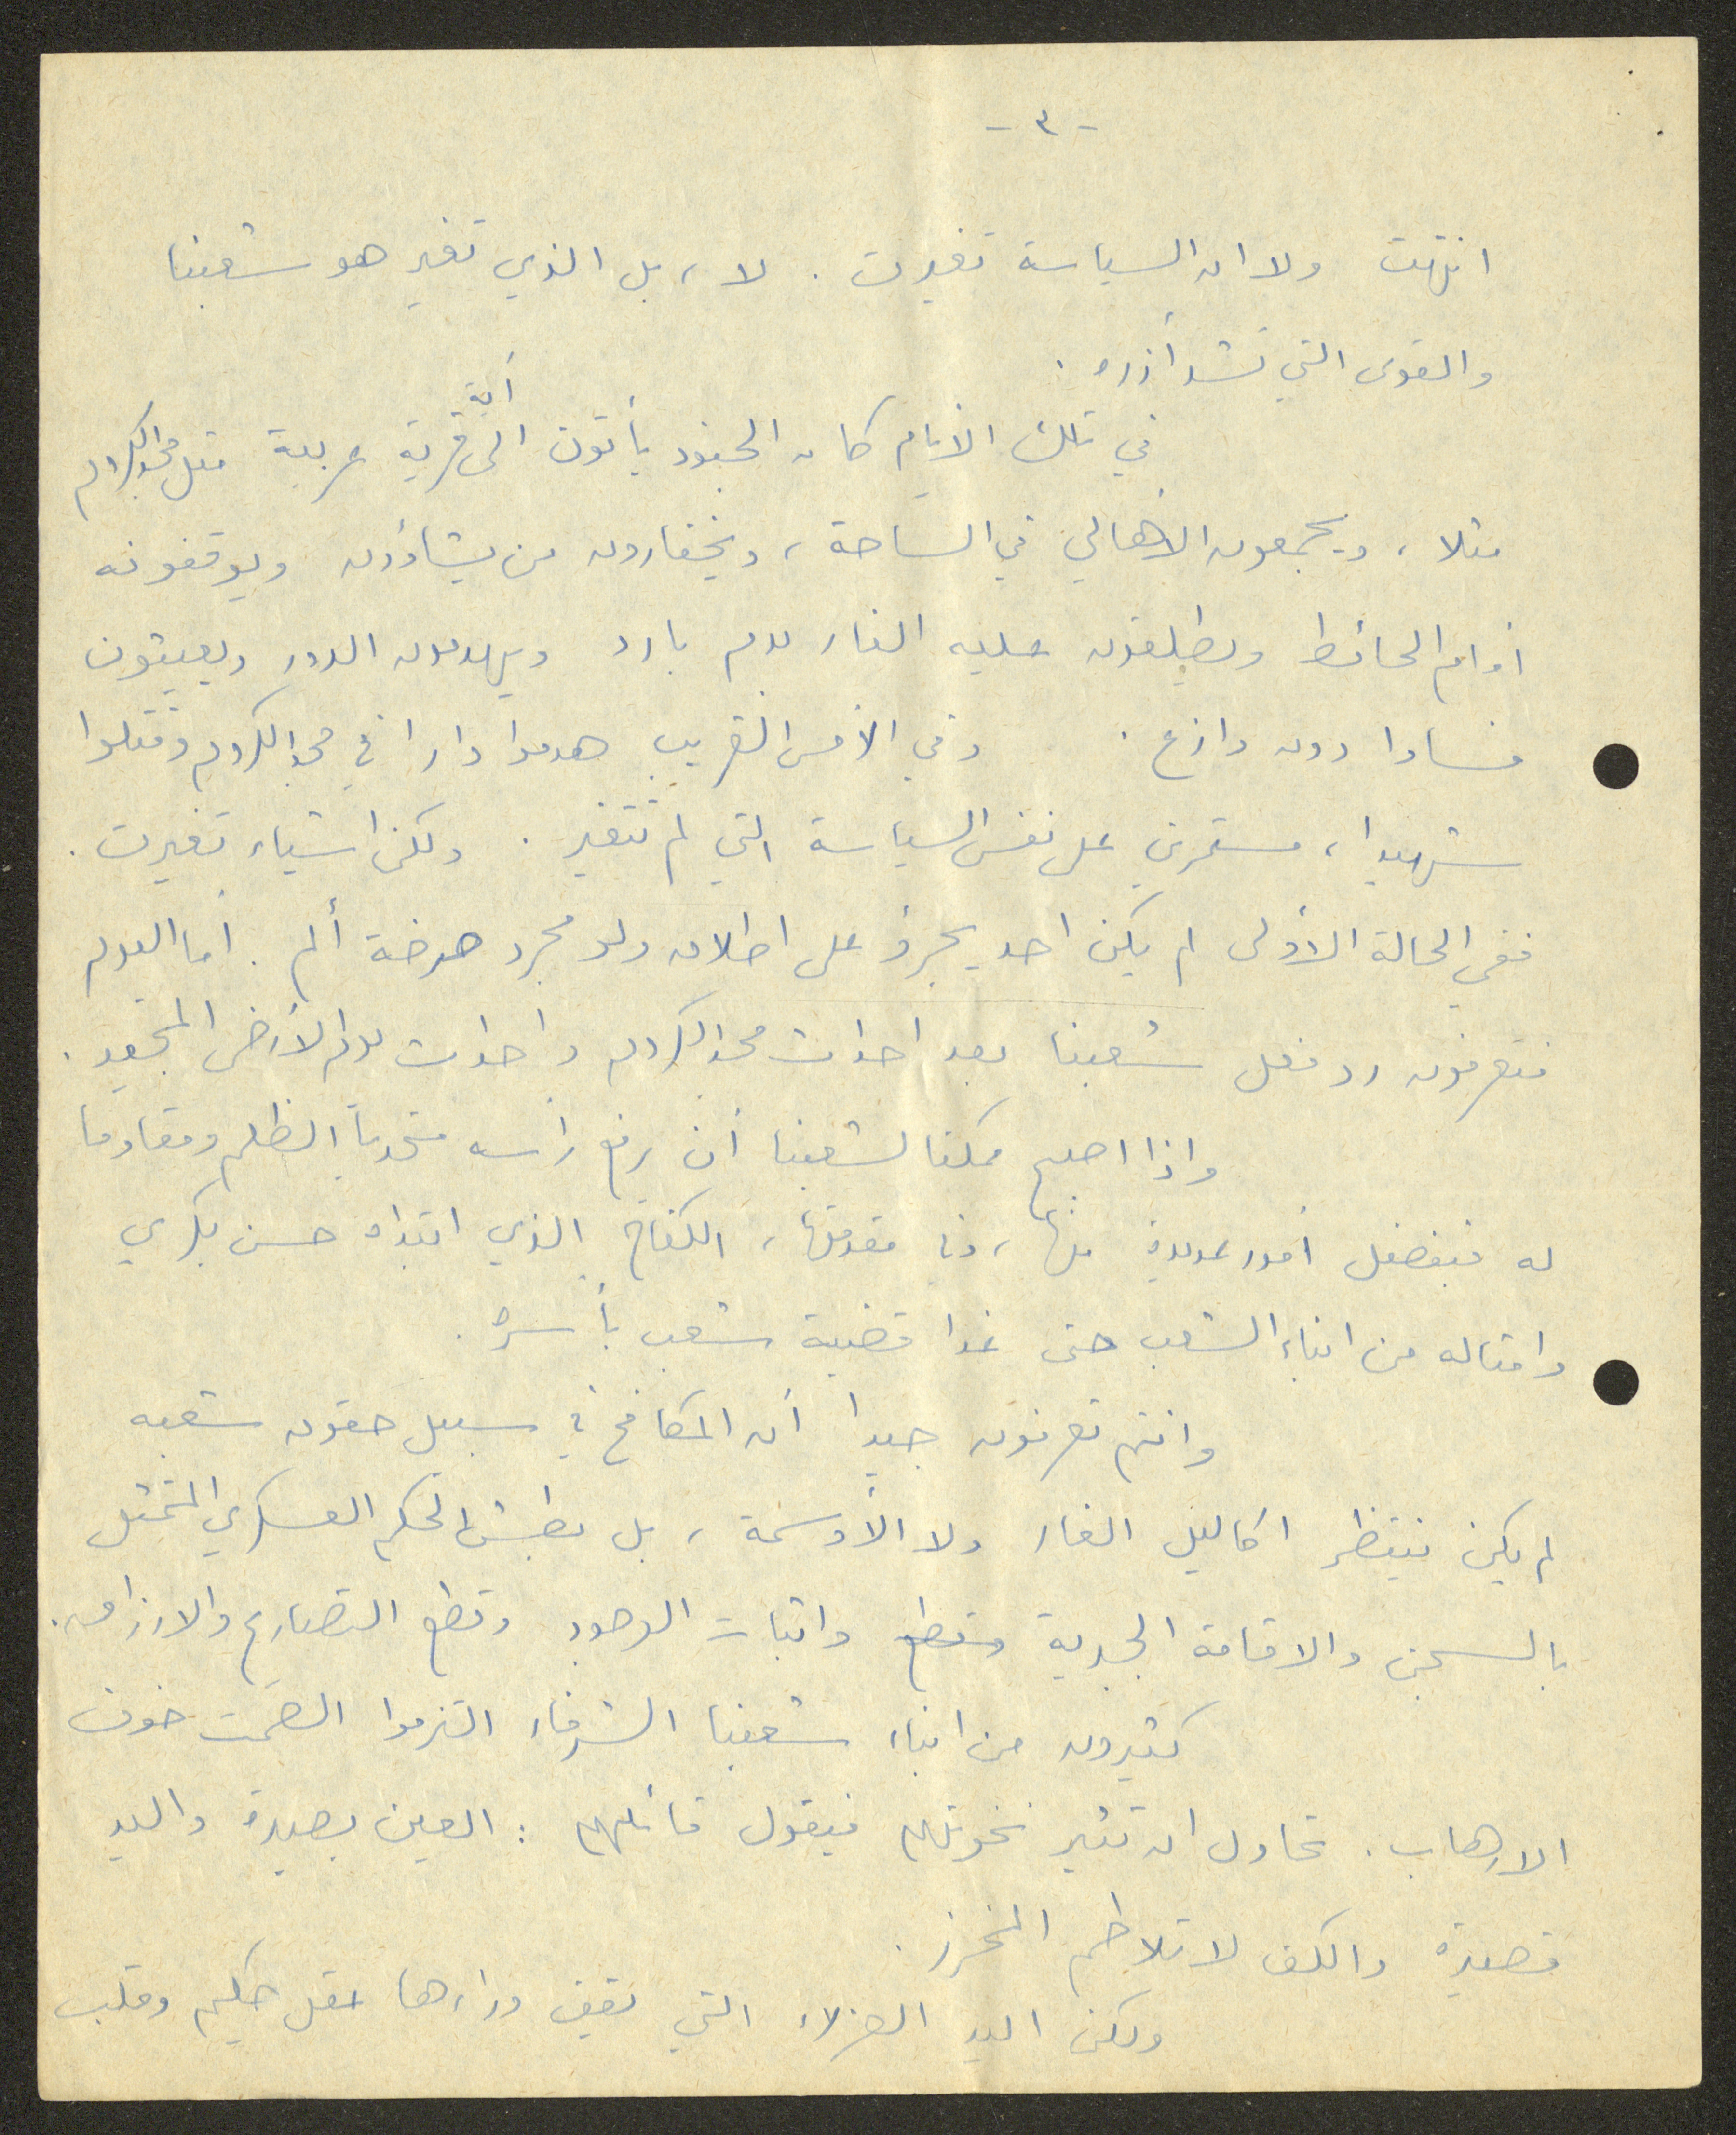 - ٣ -
انتهت ولا ان السياسة تغيرت . لا ، بل الذي تغير هو شعبنا
والقوى التي تشد أزره .
في تلك الأيام كان الجنود يأتون الى أية قرية عربية مثل مجد الكروم
مثلا ، ويجمعون الأهالي في الساحة ، ويختارون من يشاؤون ويوقفونه
أمام الحائط ويطلقون عليه النار بدم بارد ويهدمون الدور ويعيثون
فسادا دون وازع . وفي الأمس القريب هدموا دارا في مجد الكروم وقتلوا
شهيدا ، مستمرين على نفس السياسة التي لم تتغير . ولكن اشياء تغيرت .
ففي الحالة الأولى لم يكن احد يجرؤ على اطلاق ولو مجرد صرخة ألم . أما اليوم
فتعرفون رد فعل شعبنا بعد احداث مجد الكروم واحداث يوم الأرض المجيد .
واذا اصبح ممكنا لشعبنا أن يرفع رأسه متحدياً الظلم ومقاوما
له فبفضل أمور عديدة منها ، وفي مقدمتها ، الكفاح الذي ابتدأه حسن بكري
وامثاله من ابناء الشعب حتى غدا قضية شعب بأسره .
وانتم تعرفون جيدا أن المكافح في سبيل حقوق شعبه
لم يكن ينتظر اكاليل الغار ولا الأوسمة ، بل بطش الحكم العسكري المتمثل
بالسجن والاقامة الجبرية وقطع واثبات الوجود وقطع التصاريح والارزاق .
كثيرون من ابناء شعبنا الشرفاء التزموا الصمت خوف
الارهاب . تحاول ان تثير نخوتهم فيقول قائلهم : العين بصيرة واليد
قصيرة والكف لا تلاطم المخرز .
ولكن اليد العزلاء التي تقف وراءها عقل حكيم وقلب